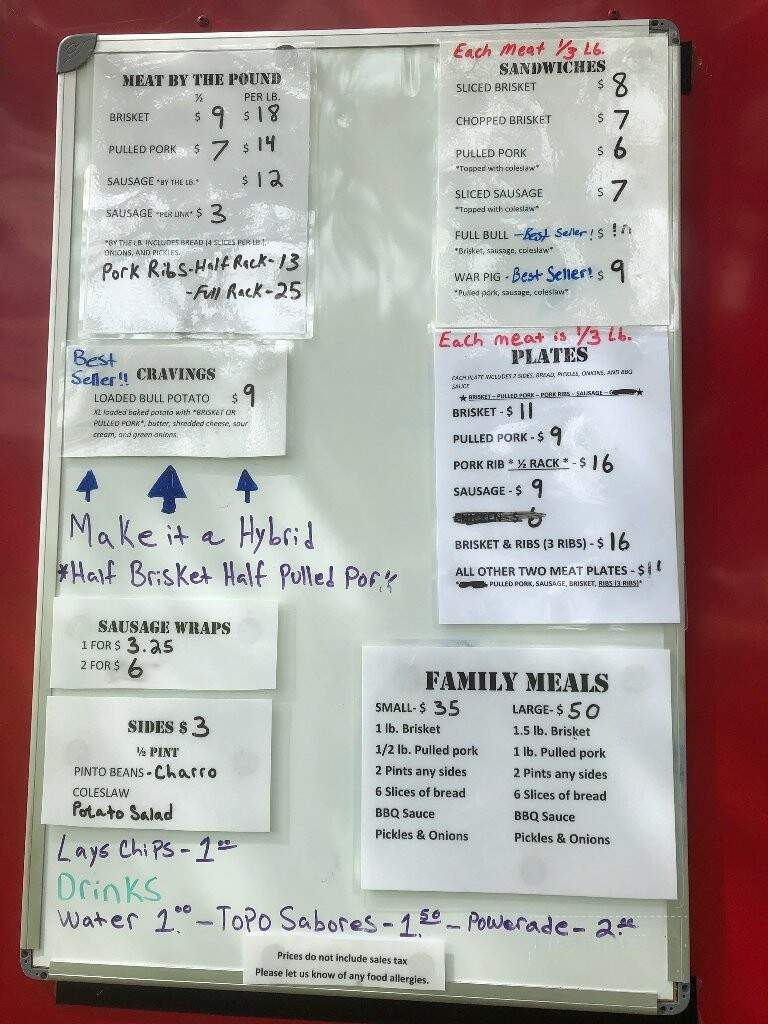 MEAT BY THE POUND
½ PER LB.
BRISKET $ 9 $ 18
PULLED PORK $ 7 $ 14
SAUSAGE *BY THE LB.* $ 12
SAUSAGE *PER LINK* $ 3
*BY THE LB. INCLUDES BREAD (4 SLICES PER LB.),
ONIONS, AND PICKLES.
Pork Ribs-Half Rack-13
-Full Rack-25
Best
Seller!! CRAVINGS
LOADED BULL POTATO $ 9
XL loaded baked potato with *BRISKET OR
PULLED PORK*, butter, shredded cheese, sour
cream, and green onions.
Make it a Hybrid
*Half Brisket Half Pulled Pork
SAUSAGE WRAPS
1 FOR $ 3.25
2 FOR $ 6
SIDES $ 3
½ PINT
PINTO BEANS - Charro
COLESLAW
Potato Salad
Lays Chips - 1.00
Drinks
Water 1.00 - Topo Sabores - 1.50 - Powerade - 2.00
Each meat 1/3 Lb.
SANDWICHES
SLICED BRISKET $ 8
CHOPPED BRISKET $ 7
PULLED PORK $ 6
*Topped with coleslaw*
SLICED SAUSAGE $ 7
*Topped with coleslaw*
FULL BULL - Best Seller! $
*Brisket, sausage, coleslaw*
WAR PIG - Best Seller! $ 9
*Pulled pork, sausage, coleslaw*
Each meat is 1/3 Lb.
PLATES
EACH PLATE INCLUDES 2 SIDES, BREAD, PICKLES, ONIONS, AND BBQ
SAUCE
BRISKET – PULLED PORK – PORK RIBS – SAUSAGE –
BRISKET - $ 11
PULLED PORK - $ 9
PORK RIB * ½ RACK * - $ 16
SAUSAGE - $ 9
BRISKET & RIBS (3 RIBS) - $ 16
ALL OTHER TWO MEAT PLATES - $
PULLED PORK, SAUSAGE, BRISKET, RIBS (3 RIBS)*
FAMILY MEALS
SMALL- $ 35 LARGE- $ 50
1 lb. Brisket 1.5 lb. Brisket
1/2 lb. Pulled pork 1 lb. Pulled pork
2 Pints any sides 2 Pints any sides
6 Slices of bread 6 Slices of bread
BBQ Sauce BBQ Sauce
Pickles & Onions Pickles & Onions
Prices do not include sales tax
Please let us know of any food allergies.